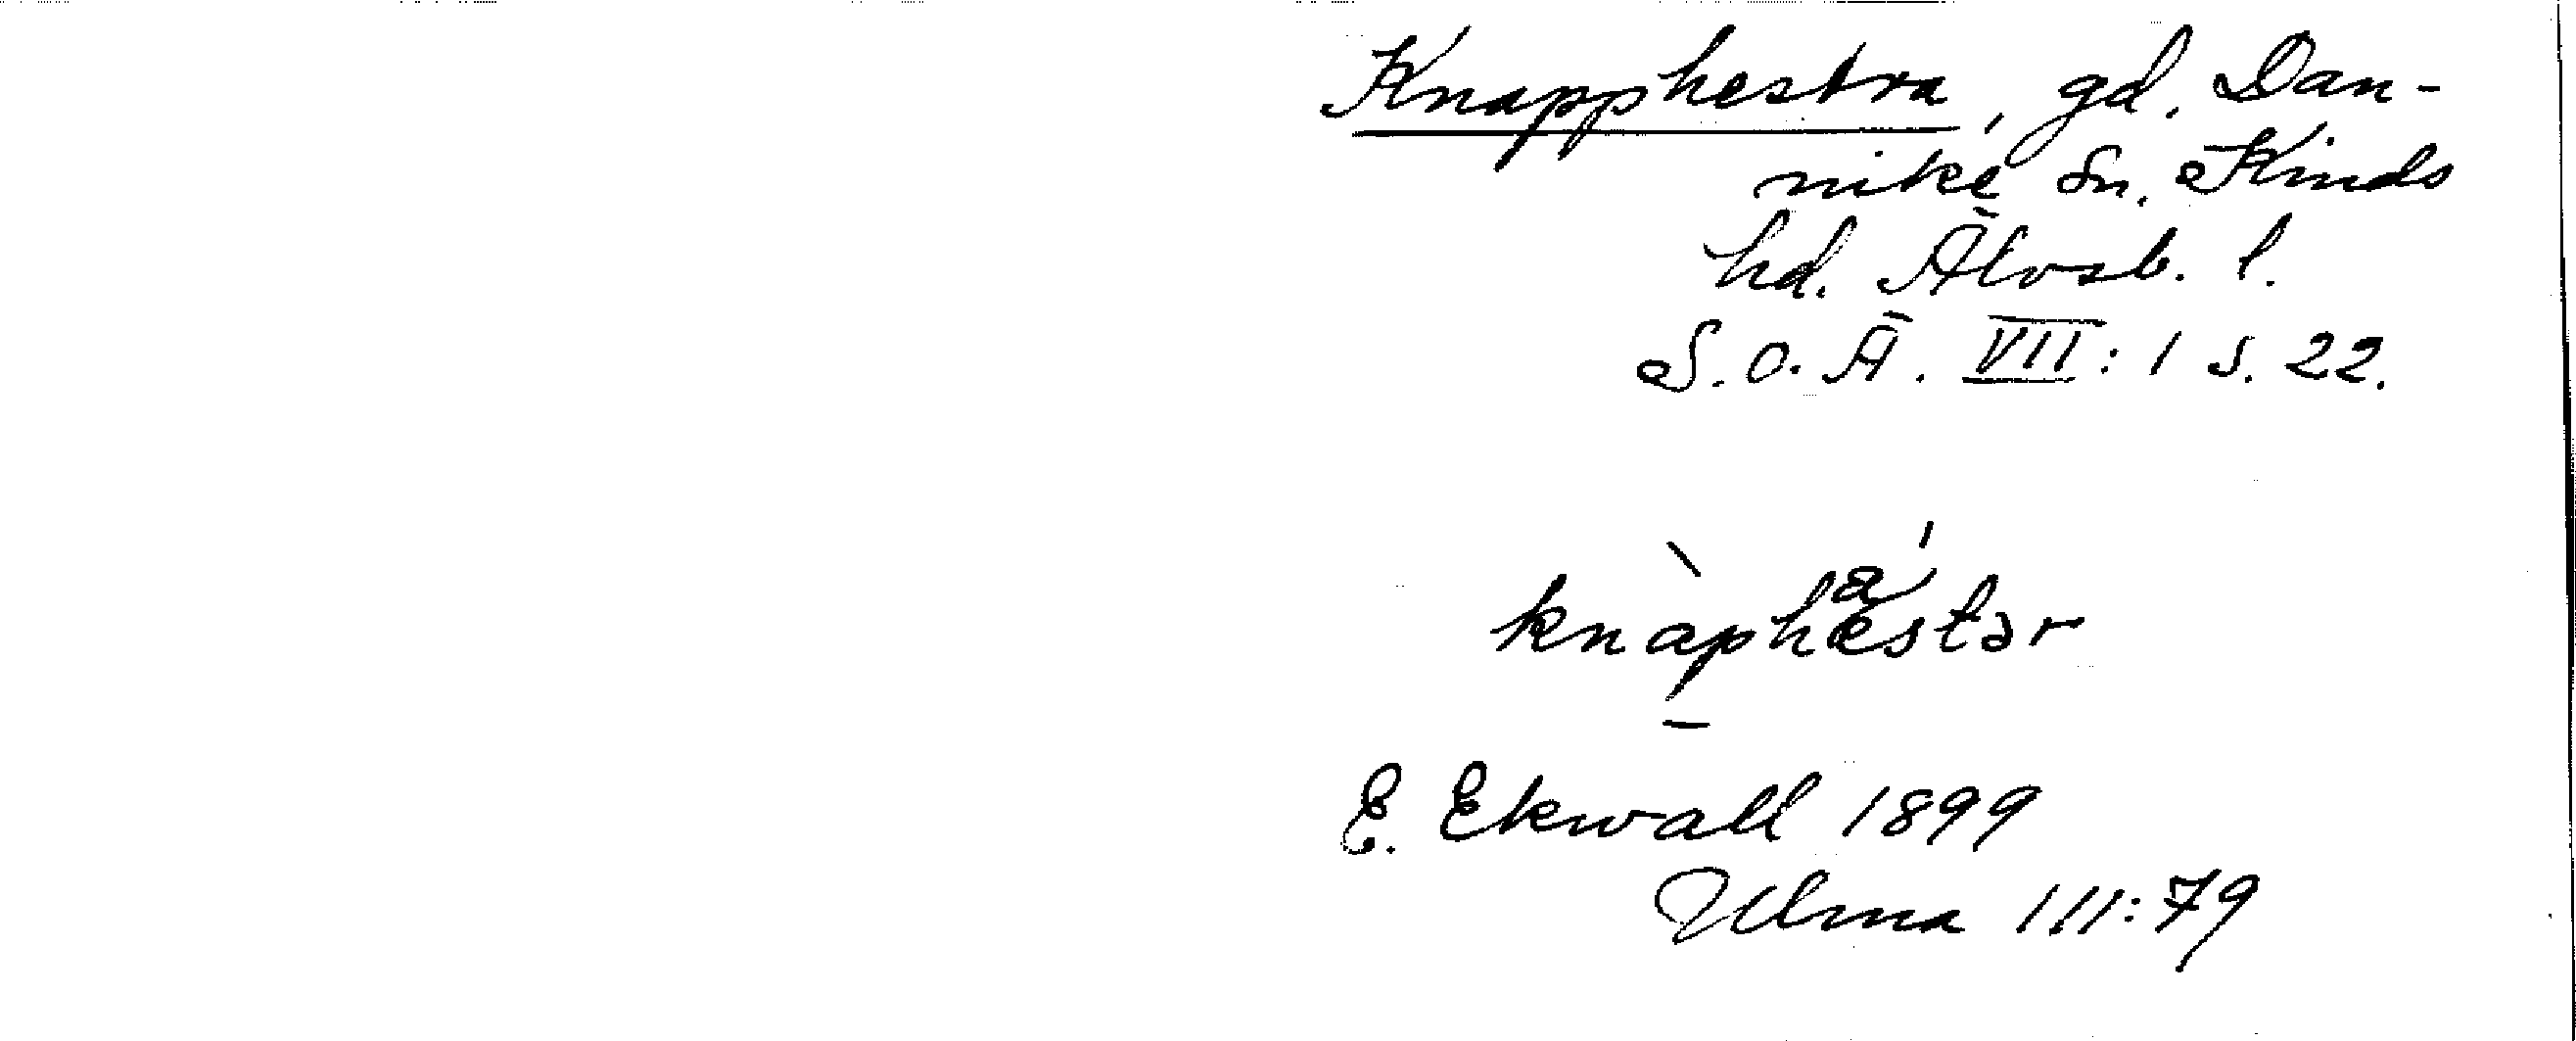 Knapphestra, gd, Dan-
nike sn. Kinds
hd. Älvsb. l.
S.O.Ä. VII: 1 s. 22.
knàphǽstər
E. Ekwall 1899
Ulma 111:79